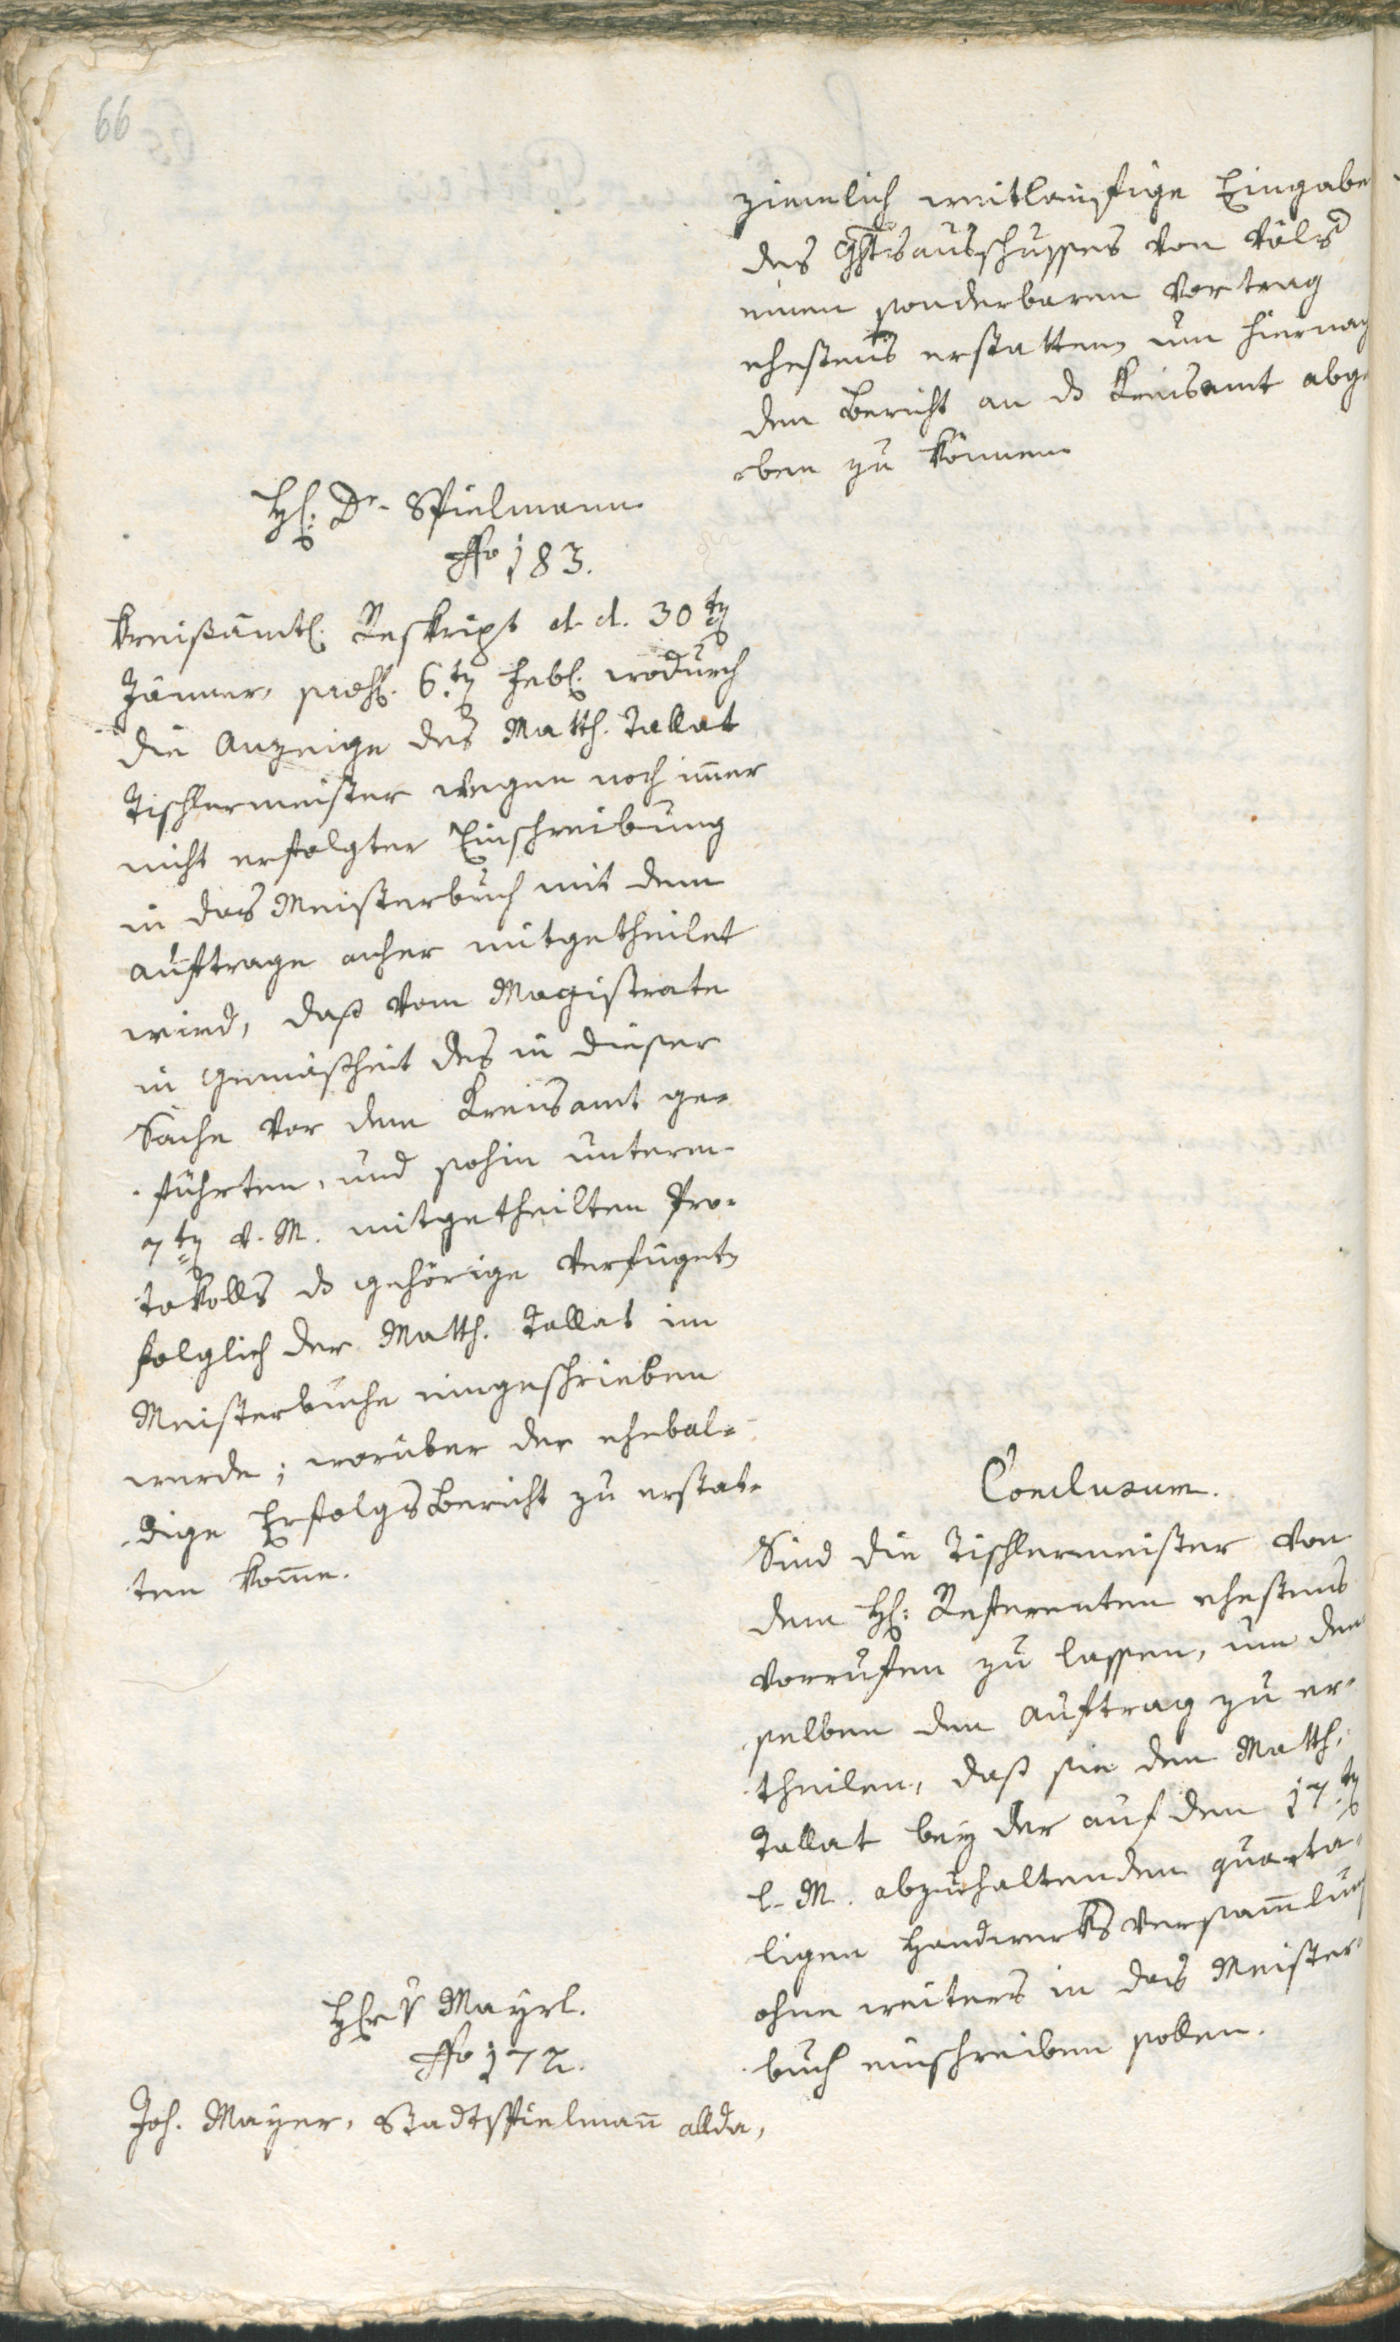 66
ziemlich weitläufige Eingabe
des Ghtsausschusses von Völs
einen sonderbaren Vortrag
ehestens erstatten um hiernach
den Bericht an d. Kreisamt abge
ben zu können
H: Dr. Spielmann
No 183.
Kreißämtl. Reskript d. d. 30ten
Jänner, 6ten Febr. wodurch
die Anzeige des Matth. Tallat
Tischlermeister wegen noch imer
nicht erfolgter Einschreibung
in das Meisterbuch mit dem
Auftrage anher mitgetheilet
wird, daß vom Magistrate
in Gemäßheit des in dieser
Sache vor dem Kreisamt ge-
führten, und sohin unterm
7ten v. M. mitgetheilten Pro-
tokolls d. gehörige verfüget,
folglich der Matth. Tallat im
Meisterbuche eingeschrieben
werde; worüber der ehebal-
dige Erfolgsbericht zu erstat-
ten kome.
Conclusum.
Sind die Tischlermeister von
dem H: Referenten ehestens
vorrufen zu lassen, um den
selben den Auftrag zu er-
theilen, daß sie den Matth.
Tallat bey der auf den 17ten
l. M. abzuhaltenden quarta-
ligen Handwerksversamlung
ohne weiters in das Meister-
buch einschreiben sollen.
Mayrl.
No 172.
Joh. Mayer, Stadtspielman allda,